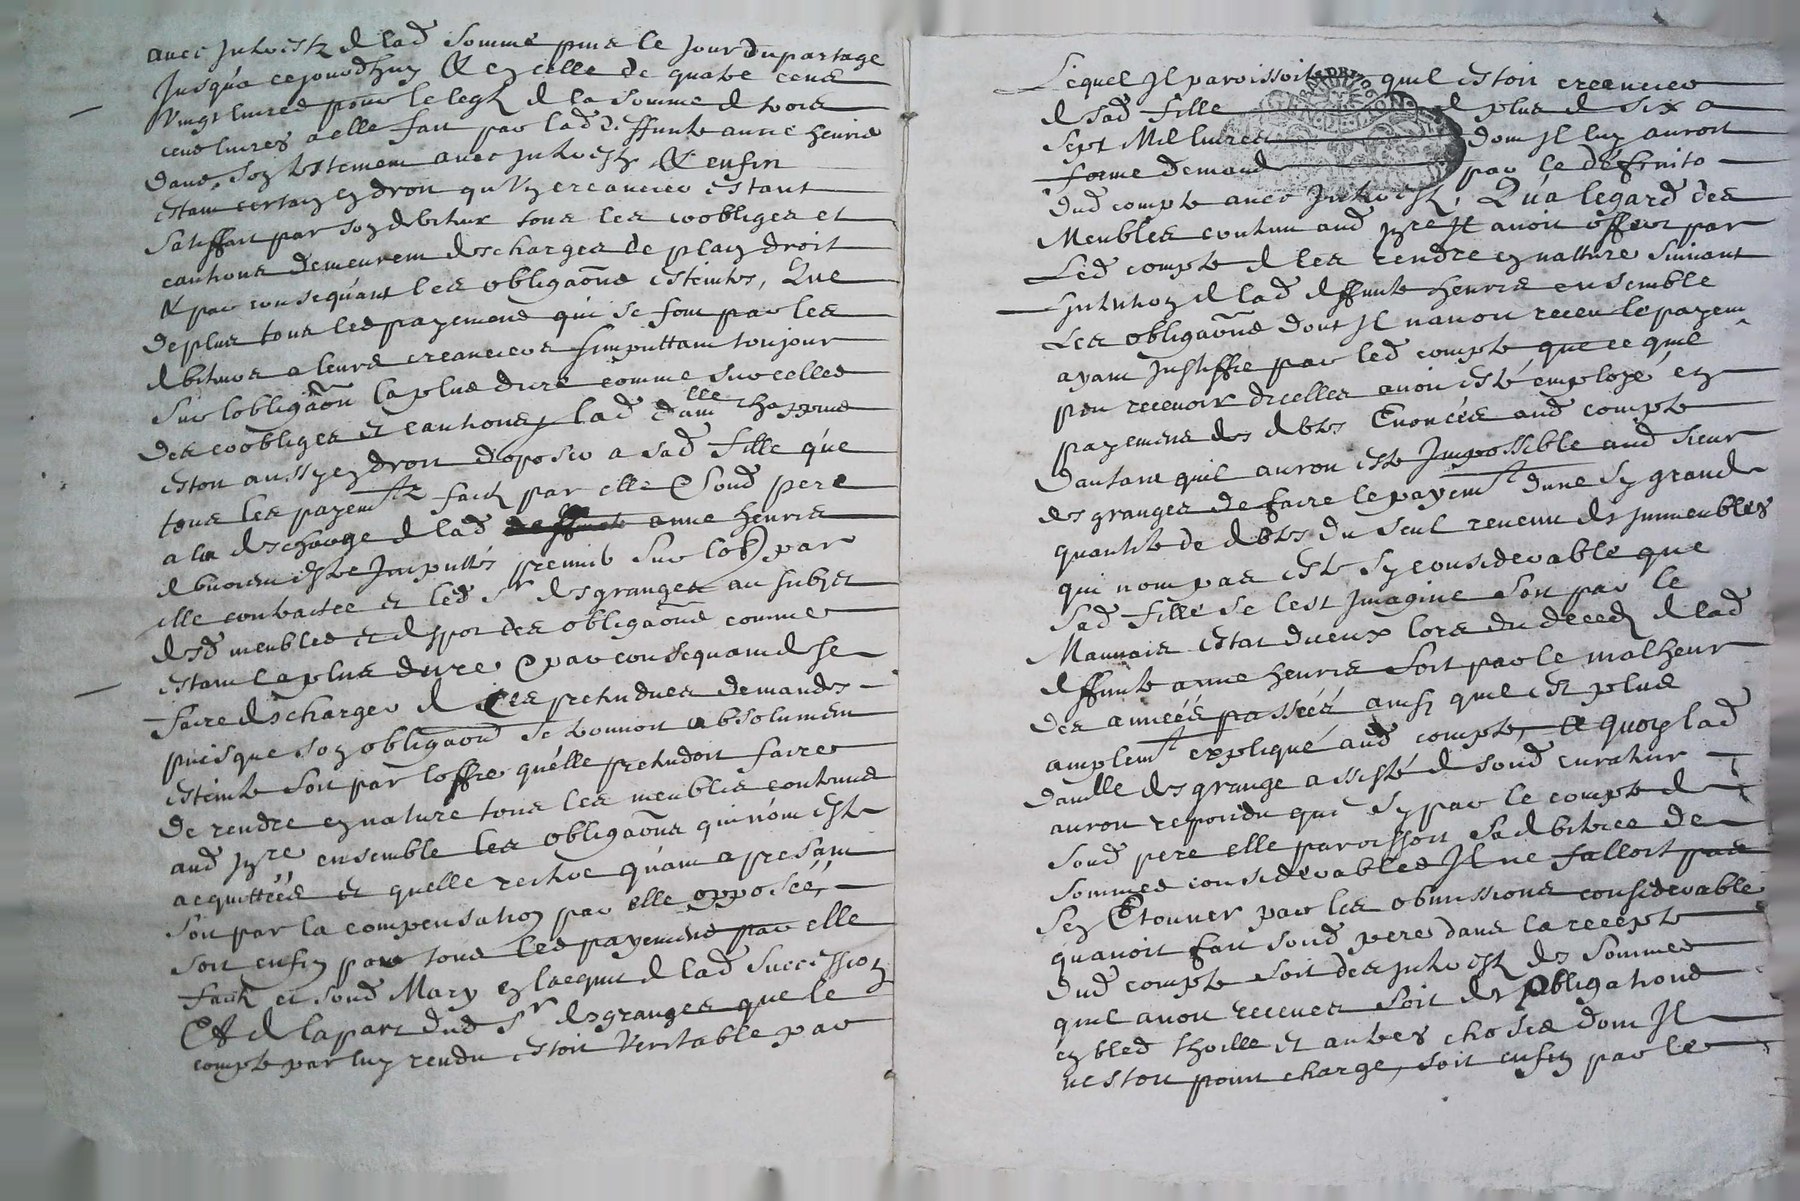 avec Interestz de lad somme puis le jour du partage
Jusqua cejourdhuy & en celle de quatre cens
Vingt livres pour le legz de la somme de trois
cens livres a elle fait par lad deffunte anne henrie
dans son testement avec Interestz & enfin
estant certain en droit quun creancier estant
satisffait par son debiteur tous les coobliges et
cautions demeurent descharges de plain droit
& par consequant les obligaōns esteintes, Que
de plus tous les payemens qui se font par les
debiteurs a leurs creanciers simputtant toujour
sur lobligaōn la plus dure comme sur celles
des coobliges et cautions, lad damlle
estoit aussy en droit doposer a sad fille que
tous les payemts faitz par elle & soud pere
a la descharge de lad anne henrie
debvoient estre Imputtés premier sur lob) par
elle contractee et led sr desgranges au subjet
desd meubles et des obligaōns comme
estant la plus dure & par consequant de se
faire descharger de ces pretendues demandes
puisque son obligaōn se trouvoit absolument
esteinte soit par loffre quelle pretendoit faire
de rendre en nature tous les meubles contenus
aud Inre ensemble les obligaōns qui nont este
acquittées et quelle restive quant apresant
soit par la compensation par elle opposeé,
soit enfin pour tous les payemens par elle
faitz et soud Mary en lacquit de lad succession
Et de la part dud sr desgranges que le
compte par luy rendu estoit veritable par
Lequel Il paroissoit quil estoit creancier
de sad fille de plus de six a
sept Mil livres dont Il luy auroit
forme demand par le
dud compte avec Interestz, Qua legard des
Meubles contenu aud Inre Il avoit offert par
Led compte de les rendre en natture suivant
Lintention de lad deffunte henrie ensemble
Les obligaōns dont Il navoit receu le payem
ayant Justiffie par led compte que ce quil
peu recevoir dicelles avoit esté employé en
payemens des debtes Enoncées aud compte
Dautant quil auroit este Impossible aud sieur
desgranges de faire le payemt dune sy grande
quantite de debtes du seul revenu des Immeubles
qui nont pas este sy considerable que
sad fille se lest Imagine soit par le
Mauvais estat dueux lors du decedz de lad
deffunte anne henrie soit par le malheur
des anneés passeés ainsy quil est plus
amplemt expliqué aud compte, A quoy lad
damlle desgrange assisté de soud curateur
auroit repondu que sy par le compte de
soud pere elle paroissoit sa debitrice de
sommes considerables Il ne falloit pas
sen Etonner par les obmissions considerable
quavoit fait soud pere dans la recepte
dud compte soit des Interestz des sommes
quil avoit receues soit des obligations
en bled thoille et autres choses dont Il
nestoit point charge, soit enfin par les